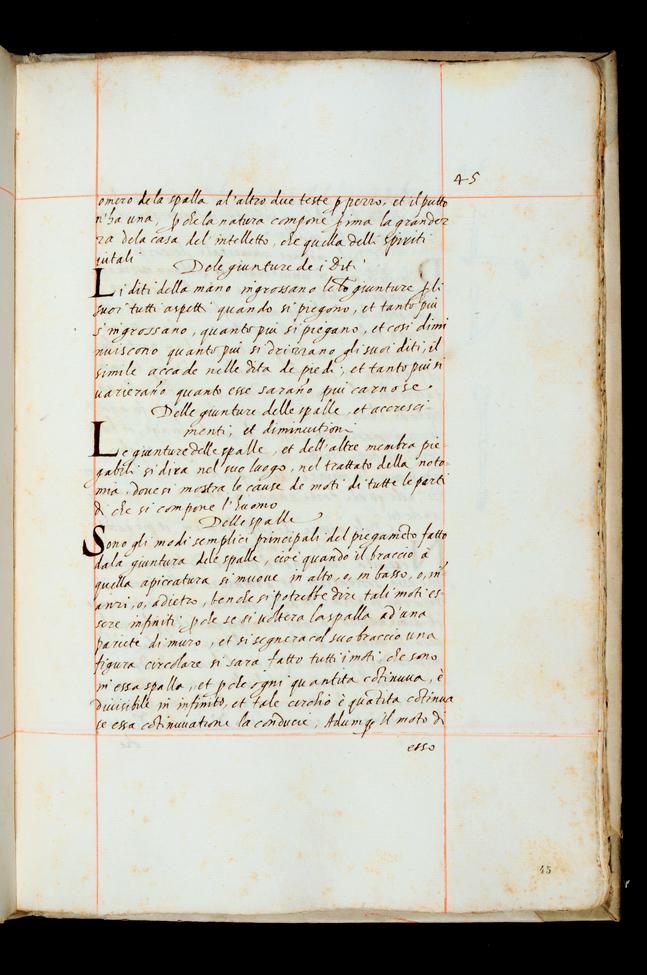 45
omero dela spalla al'altro due teste ꝑ pezzo, et il putto
n'ha una, ꝑ che la natura compone ꝑima la grandez
za dela casa del intelletto, che quella delli spiriti
uitali
Dele giunture de i Diti
Li diti della mano ingrossano le lo͂ giunture ꝑ li
suoi tutti aspetti quando si piegono, et tanto piu
s'ingrossano, quanto piu si piegano, et cosi dimi
nuiscono quanto piu si drizzano gli suoi diti, il
simile accade nelle dita de piedi, et tanto piu si
uarierano quanto esse sarano piu carnose.
Delle giunture delle spalle, et accresci
menti, et diminutioni
Le giunture delle spalle, et dell'altre membra pie-
gabili si dira nel suo luogo, nel trattato della noto-
mia, doue si mostra le cause de moti di tutte le parti
di che si compone l'huomo
Delle spalle
Sono gli modi semplici principali del piegameto fatto
dala giuntura dele spalle, cioè quando il braccio à
quella apiccatura si muoue in alto, o, in basso, o, in-
anzi, o, adietro, benche si potrebbe dire tali moti es-
sere infiniti ꝑche se si uoltera la spalla ad'una
pariete di muro, et si segnera col suo braccio una
figura circolare si sara fatto tutti i moti, che sono
in essa spalla, et ꝑche ogni quantita cõtinuua, è
diuisibile in infinito, et tale cerchio è quãtita cõtinua
se essa cõtinuuatione la conducie, Adumqꝫ il moto di
esso
45